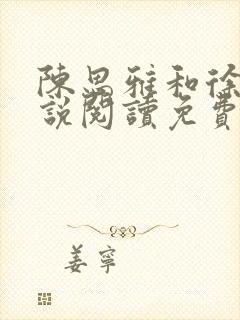 陳思雅和徐
說閱讀免費
姜寧